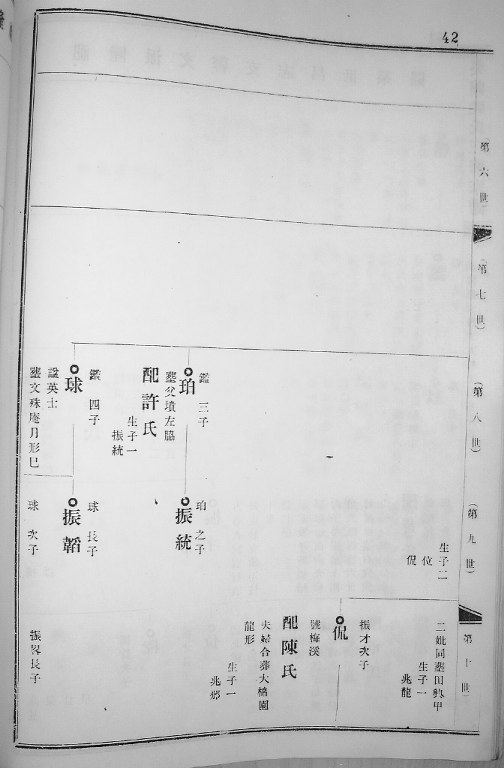 42
第六世
第七世
(第八世)
(第九世)
第十世
生子二
位
侃
二妣同塟田與甲
生子一
兆龍
振才次子
侃
號梅溪
配陳氏
夫婦合葬大橋園
龍形
生子一
兆鄉
鑑三子
珀
塟父墳左脇
配許氏
生子一
振統
珀之子
振統
鑑四子
球
諡英士
塟文殊庵月形巳
球長子
振韜
球次子
振畧長子